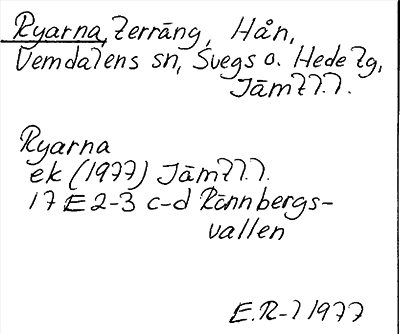 Ryarna, terräng, Hån,
Vemdalens sn, Svegs o. Hede tg,
Jämtl.l.
Ryarna
ek (1977) Jämtl.l.
17 E 2-3 c-d Rönnbergs-
vallen
E.R-l 1977